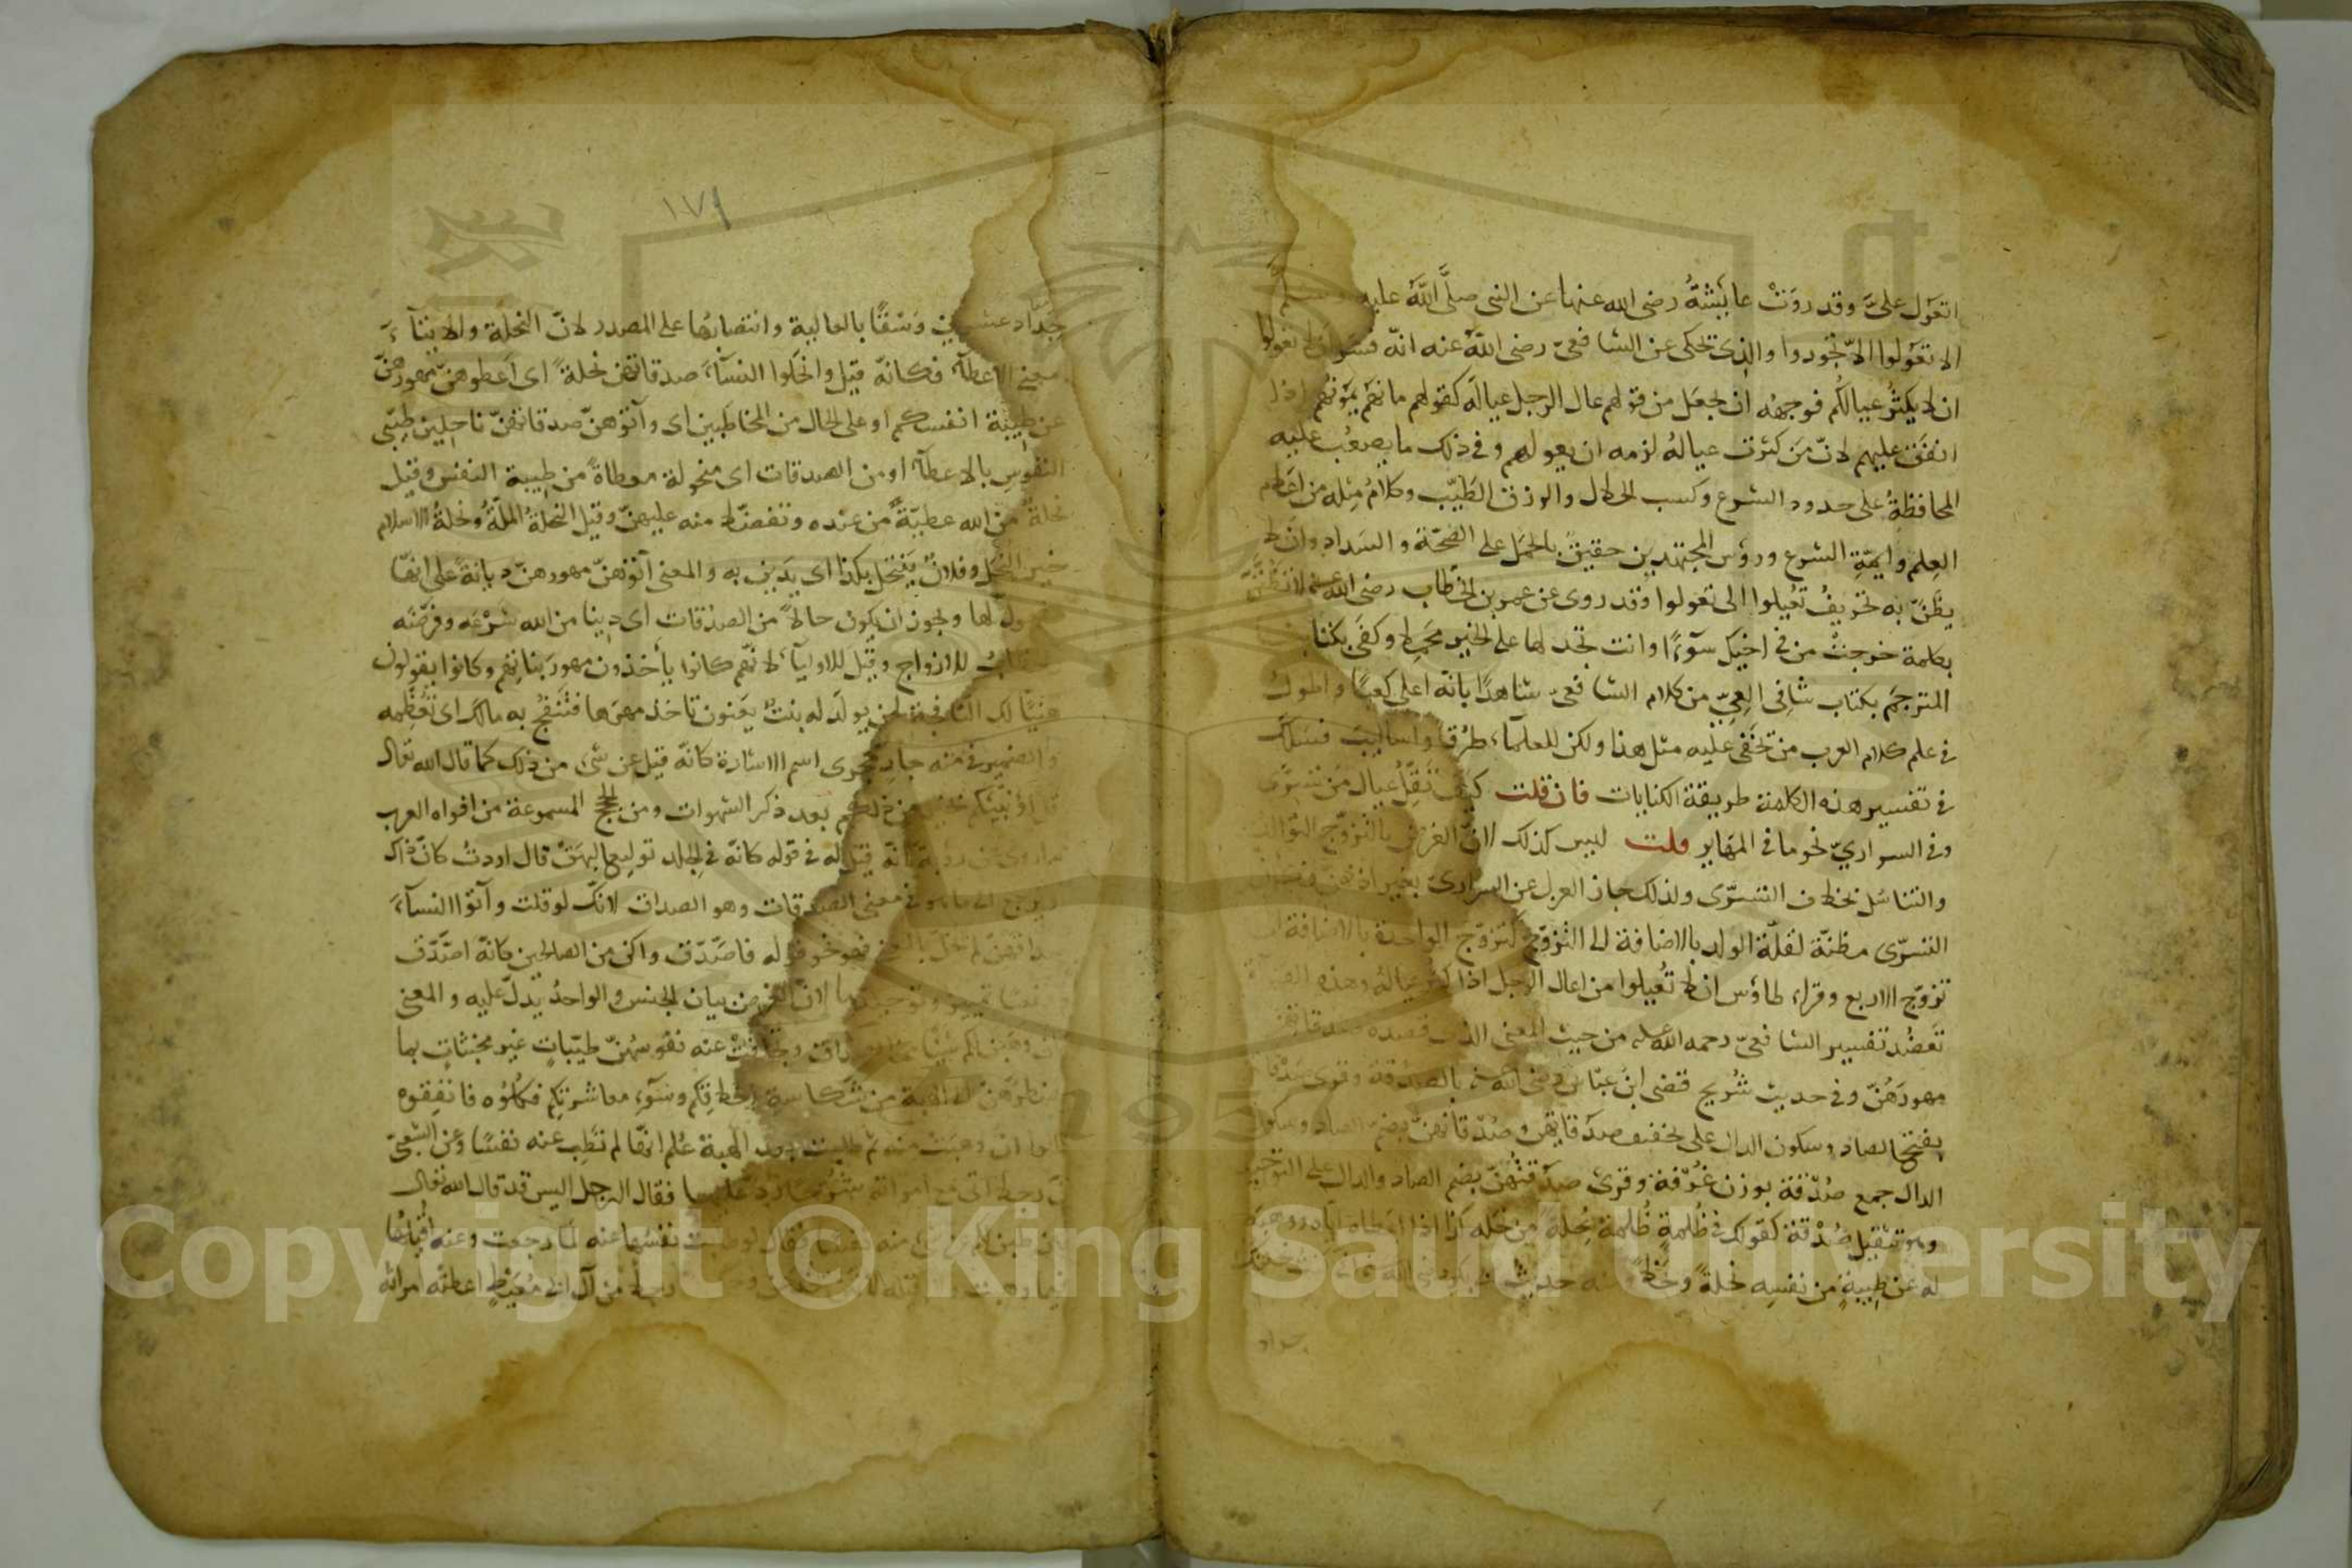 اتعول علىّ وقد روت عايشة رضى الله عنها عن النبى صلّى الله عليه وسلم
الا تعولوا الاّ تجوروا والذى تحكى عن الشافعىّ رضى الله عنه انّه فسر ان لا تعولوا
ان لا يكثُر عيالكم فوجهه ان يجعل من قولهم عال الرجل عياله كقولهم مانهم يمونهم اذا
انفق عليهم لانّ من كثرت عياله لزمه ان يعولهم وفى ذلك ما يصعُب عليه
المحافظة على حدود الشرع وكسب الحلال والرزق الطيّب وكلام مثله من اعلام
العلم وايمّة الشرع ورؤس المجتهدين حقيق بالحمل على الصّحّة والسداد وان لا
يظنّ به تحريف تُعيلوا الى تعولوا وقد روى عن عمر بن الخطّاب رضى الله عنه لا تظنّنّ
بكلمة خرجت من فى اخيك سوءًا وانت تجد لها على الخير محملا وكفى بكتابنا
المترجم بكتاب شافى العىّ من كلام الشافعىّ شاهدًا بانّه اعلى كعبًا واطول
فى علم كلام العرب من تخفى عليه مثل هذا ولكن للعلماء طرقًا واساليب فسلك
فى تفسير هذه الكلمة طريقة الكنايات فان قلت كيف تقلّ عيال من تسرّى
وفى السرارىّ نحو ما فى المهاير قلت ليس كذلك لانّ الغرض بالتزوّج التوالد
والتناسُل بخلاف التسرّى ولذلك جاز العزل عن السرارى بغير اذنهن فكان
التسرّى مظنّة لقلّة الولد بالاضافة الى التزوّج كتزوّج الواحدة بالاضافة الى
تزوّج الاربع وقراء طاوس ان لا تُعيلوا من اعال الرجل اذا كثر عياله وهذه القراءة
تعضُد تفسير الشافعىّ رحمه الله عليه من حيث المعنى الذى قصده صدقاتهن
مهورهُنّ وفى حديث شُريح قضى ابن عباس رضى الله عنه بالصدُقة وقرى صدقاتهن
بفتح الصاد وسكون الدال على تخفيف صدقاتهن وصُدقاتهنّ بضم الصاد وسكون
الدال جمع صُدْقة بوزن غُرْفة وقرى صدقتُهُنّ بضم الصاد والدال على التوحيد
وهو تثقيل صُدْقة كقولك فى ظُلمة ظُلُمة نِحلة من نحله كذا اذا اعطاه اياه ووهبه
له عن طيبة من نفسه نحلة ونحلا ومنه حديث
جداد
١٧١
جداد عشرين وسقًا بالعالية وانتصابها على المصدر لانّ النحلة والايتاء
بمعنى الاعطاء فكانّه قيل وانحلوا النساء صدقاتهن نحلة اى اعطوهنّ مهورهنّ
عن طيبة انفسكم او على الحال من المخاطبين اى وآتوهنّ صدقاتهنّ ناحلين طيّبى
النفوس بالاعطاء او من الصدقات اى منحولة معطاة من طيبة النفس وقيل
نحلة من الله عطيّة من عنده وتفضّلا منه عليهنّ وقيل النحلة الملّة ونحلة الاسلام
خير النحل وفلان ينتحل بكذا اى يدين به والمعنى آتوهنّ مهورهنّ ديانة على انها
مفعول لها ويجوز ان يكون حالا من الصدقات اى دينا من الله شرعه وفرضه
والخطاب للازواج وقيل للاولياء لانّهم كانوا ياخذون مهور بناتهم وكانوا يقولون
هنيًا لك النافجة لمن يولد له بنت يعنون تاخذ مهرها فتنفج به مالك اى تعظمه
والضمير فى منه جارٍ مجرى اسم الاشارة كانّه قيل عن شىء من ذلك كما قال الله تعالى
قل اؤنبّئكم بخير من ذلكم بعد ذكر الشهوات ومن الحجج المسموعة من افواه العرب
ما روى عن رؤبة انّه قيل له فى قوله كانّه فى الجلد توليع البهق قال اردت كانّ ذاك
ويرجع الى ما هو فى معنى الصدقات وهو الصداق لانّك لو قلت وآتوا النساء
صداقهنّ لم تخلّ بالمعنى فهو نحو قوله فاصّدّق واكن من الصالحين كانّه اصّدّق
ونفسًا تمييز وتوحيدها لانّ الغرض بيان الجنس والواحدُ يدلّ عليه والمعنى
فان وهبن لكم شيًا من الصداق وتجافت عنه نفوسهنّ طيّبات غير مخبثات بما
يضطرّهنّ الى الهبة من شكاسة اخلاقكم وسوء معاشرتكم فكلوه فانفقوه
قالوا ان وهبت منه ثم طلبت بعد الهبة عُلم انها لم تطب عنه نفسًا وعن الشعبىّ
انّ رجلا اتى مع امراته شُريحًا فقال الرجل اليس قد قال الله تعالى
فان طبن لكم عن شى منه نفسا فقال لو طابت نفسها عنه لما رجعت وعنه اقيلها
فيما وهبت رجلا من آل ابى معيط اعطته امراته
Copyright © King Saud University
1957